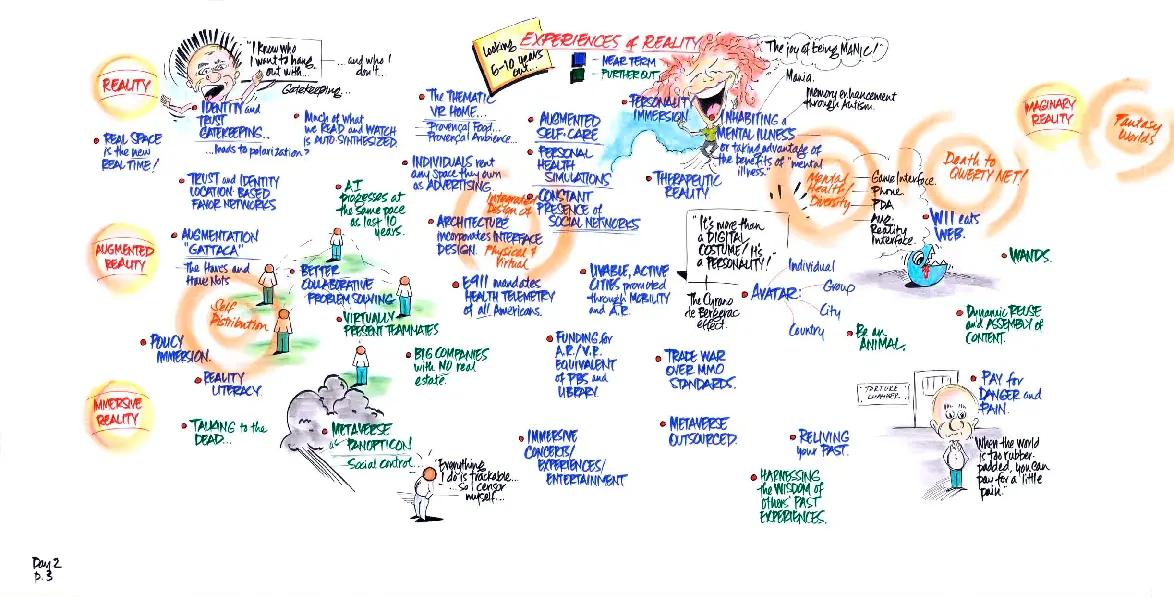 Looking
6-10 years
out...
EXPERIENCES of REALITY
- NEAR TERM
- FURTHER OUT
"I know who
I want to hang
out with...
...and who I
don't...
Gatekeeping...
"The joy of being MANIC!"
Mania.
Memory enhancement
through Autism.
REALITY
• IDENTITY and
TRUST
GATEKEEPING...
...leads to polarization?
• REAL SPACE
is the new
REAL TIME!
• Much of what
we READ and WATCH
is AUTO SYNTHESIZED.
• The THEMATIC
VR HOME...
Provençal Food...
Provençal Ambience...
• AUGMENTED
SELF-CARE
• PERSONAL
HEALTH
SIMULATIONS
• PERSONALITY
IMMERSION
• INHABITING a
MENTAL ILLNESS
or taking advantage of
the benefits of "mental
illness."
IMAGINARY
REALITY
Fantasy
Worlds
• TRUST and IDENTITY
LOCATION BASED
FAVOR NETWORKS
• AI
progresses at
the same pace
as last 10
years.
• INDIVIDUALS rent
any Space they own
as ADVERTISING.
Integrated
Design of
Physical &
Virtual
• CONSTANT
PRESENCE of
SOCIAL NETWORKS
• THERAPEUTIC
REALITY.
Mental
Health/
Diversity
Game Interface.
Phone
PDA
Aug.
Reality
Interface.
Death to
QWERTY NET!
• WII eats
WEB.
• WANDS.
AUGMENTED
REALITY
• AUGMENTATION
"GATTACA"
The Haves and
Have Nots
• ARCHITECTURE
incorporates INTERFACE
DESIGN.
"It's more than
a DIGITAL
COSTUME! It's
a PERSONALITY!"
The Cyrano
de Bergerac
effect.
• AVATAR:
Individual
Group
City
Country
• BETTER
COLLABORATIVE
PROBLEM SOLVING
Self
Distribution
• VIRTUALLY
PRESENT TEAMMATES
• E911 mandates
HEALTH TELEMETRY
of all Americans.
• LIVABLE, ACTIVE
CITIES promoted
through MOBILITY
and A.R.
• Be an
ANIMAL.
• Dynamic REUSE
and ASSEMBLY of
CONTENT.
• POLICY
IMMERSION.
• REALITY
LITERACY.
• BIG COMPANIES
with NO real
estate.
• FUNDING for
A.R./V.R.
EQUIVALENT
of PBS and
LIBRARY.
• TRADE WAR
OVER MMO
STANDARDS.
TORTURE
CHAMBER.
• PAY for
DANGER and
PAIN.
"When the world
is too rubber-
padded, you can
pay for a little
pain."
IMMERSIVE
REALITY
• TALKING to the
DEAD...
• METAVERSE
as PANOPTICON!
Social control...
"Everything
I do is trackable...
...so I censor
myself...
• IMMERSIVE
CONCERTS/
EXPERIENCES/
ENTERTAINMENT
• METAVERSE
OUTSOURCED.
• RELIVING
your PAST.
• HARNESSING
the WISDOM of
others' PAST
EXPERIENCES.
Day 2
p. 3